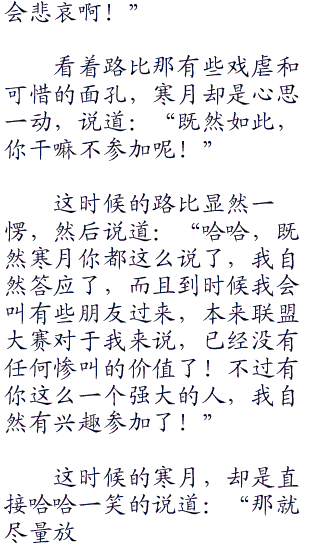 会悲哀啊！”
看着路比那有些戏虐和
可惜的面孔，寒月却是心思
一动，说道：“既然如此，
你干嘛不参加呢！”
这时候的路比显然一
愣，然后说道：“哈哈，既
然寒月你都这么说了，我自
然答应了，而且到时候我会
叫有些朋友过来，本来联盟
大赛对于我来说，已经没有
任何惨叫的价值了！不过有
你这么一个强大的人，我自
然有兴趣参加了！”
这时候的寒月，却是直
接哈哈一笑的说道：“那就
尽量放